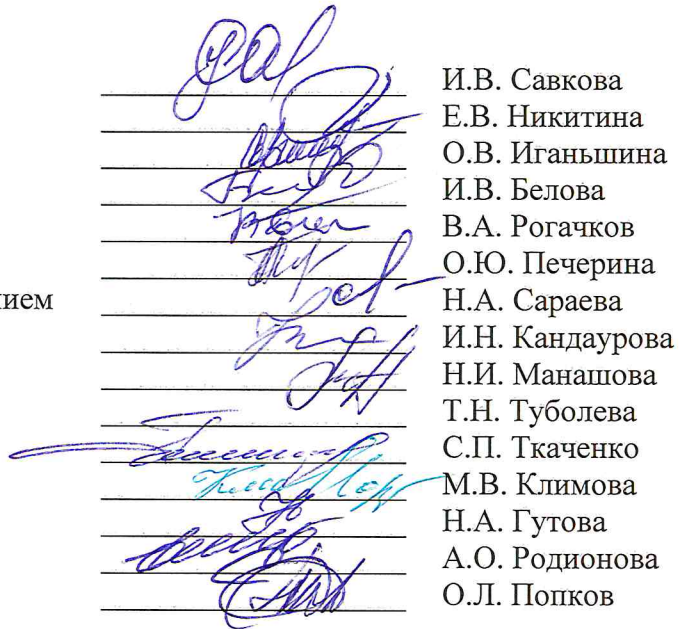 И.В. Савкова
Е.В. Никитина
О.В. Иганьшина
И.В. Белова
В.А. Рогачков
О.Ю. Печерина
нием Н.А. Сараева
И.Н. Кандаурова
Н.И. Манашова
Т.Н. Туболева
С.П. Ткаченко
М.В. Климова
Н.А. Гутова
А.О. Родионова
О.Л. Попков